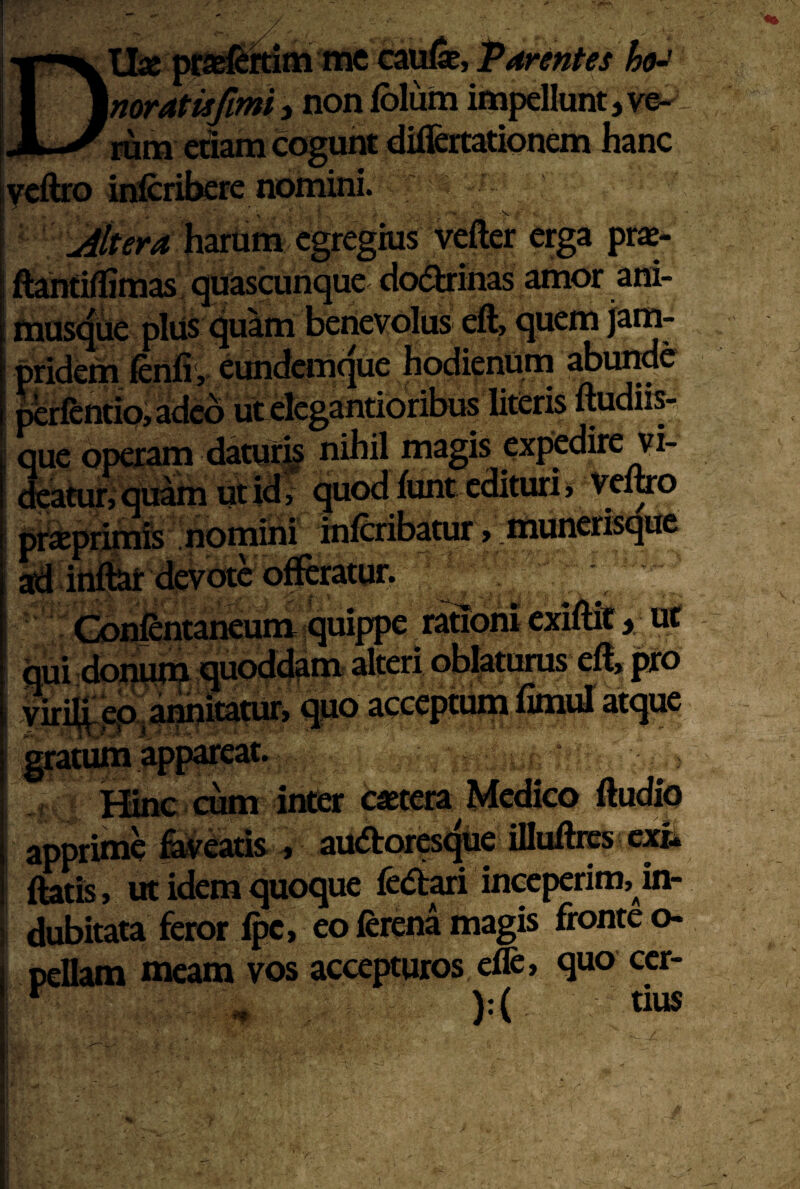 DUæ præſertim me cauſæ, Parentes ho-
noratisſimi, non ſolùm impellunt, ve-
rùm etiam cogunt diſſertationem hanc
veſtro inſcribere nomini.
Altera harum egregius veſter erga præ-
ſtantiſſimas quascunque doctrinas amor ani-
musque plus quàm benevolus eſt, quem jam-
pridem ſenſi, eundemque hodienùm abundè
perſentio, adeò ut elegantioribus literis ſtudiis-
que operam daturis nihil magis expedire vi-
deatur, quàm ut id, quod ſunt edituri, veſtro
præprimis nomini inſcribatur, munerisque
ad inſtar devotè offeratur.
Conſentaneum quippe rationi exiſtit, ut
qui donum quoddam alteri oblaturus eſt, pro
virili eo annitatur, quo acceptum ſimul atque
gratum appareat.
Hinc cùm inter cætera Medico ſtudio
apprimè faveatis, auctoresque illuſtres exi-
ſtatis, ut idem quoque ſectari inceperim, in-
dubitata feror ſpe, eo ſerenâ magis fronte o-
pellam meam vos accepturos eſſe, quo cer-
):( tius